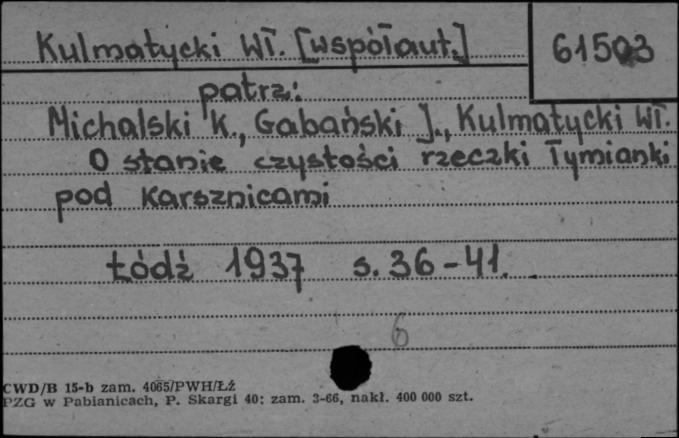 Kulmatycki Wł. [współaut.]
61503
patrz:
Michalski K., Gabański J., Kulmatycki Wł.
O stanie czystości rzeczki Tymianki
pod Karsznicami
Łódź 1937 s. 36-41.
6
CWD/B 15-b zam. 4065/PWH/Łź
PZG w Pabianicach, P. Skargi 40; zam. 3-66, nakł. 400 000 szt.